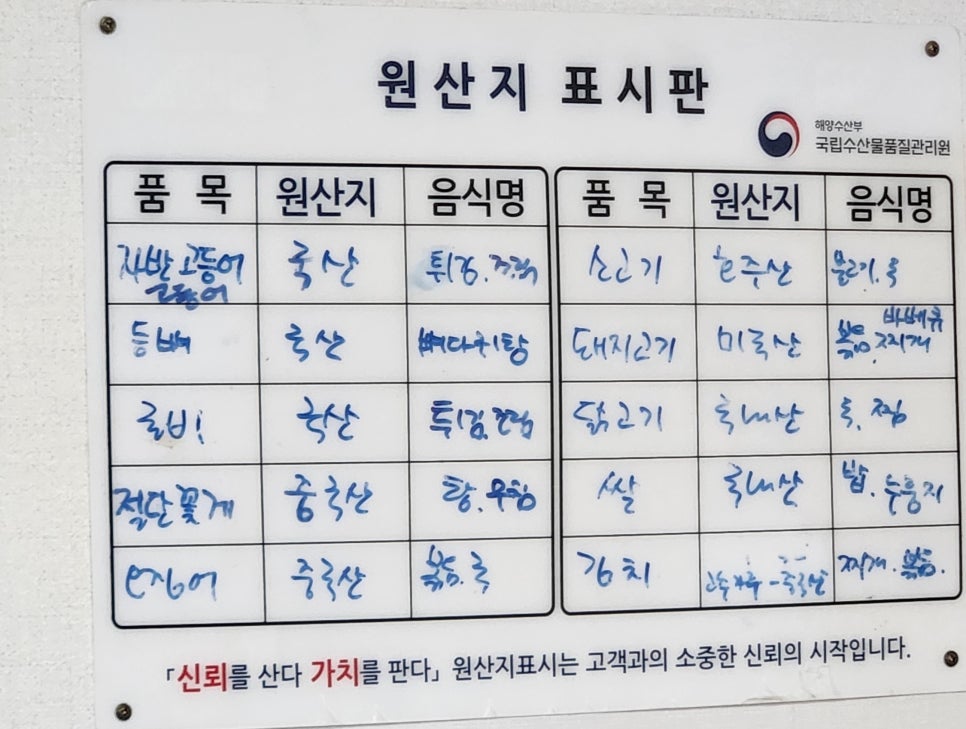 원산지 표시판
해양수산부
국립수산물품질관리원
품 목 원산지 음식명 품 목 원산지 음식명
자반고등어 국산 튀김.조림 소고기 호주산 불고기.국
고등어
등뼈 국산 뼈다귀탕 돼지고기 미국산 볶음.찌개 바베큐
굴비 국산 튀김.조림 닭고기 국내산 국.찜
절단꽃게 중국산 탕.무침 쌀 국내산 밥.누룽지
오징어 중국산 볶음.국 김치 고추가루-중국산 찌개.볶음.
「신뢰를 산다 가치를 판다」 원산지표시는 고객과의 소중한 신뢰의 시작입니다.